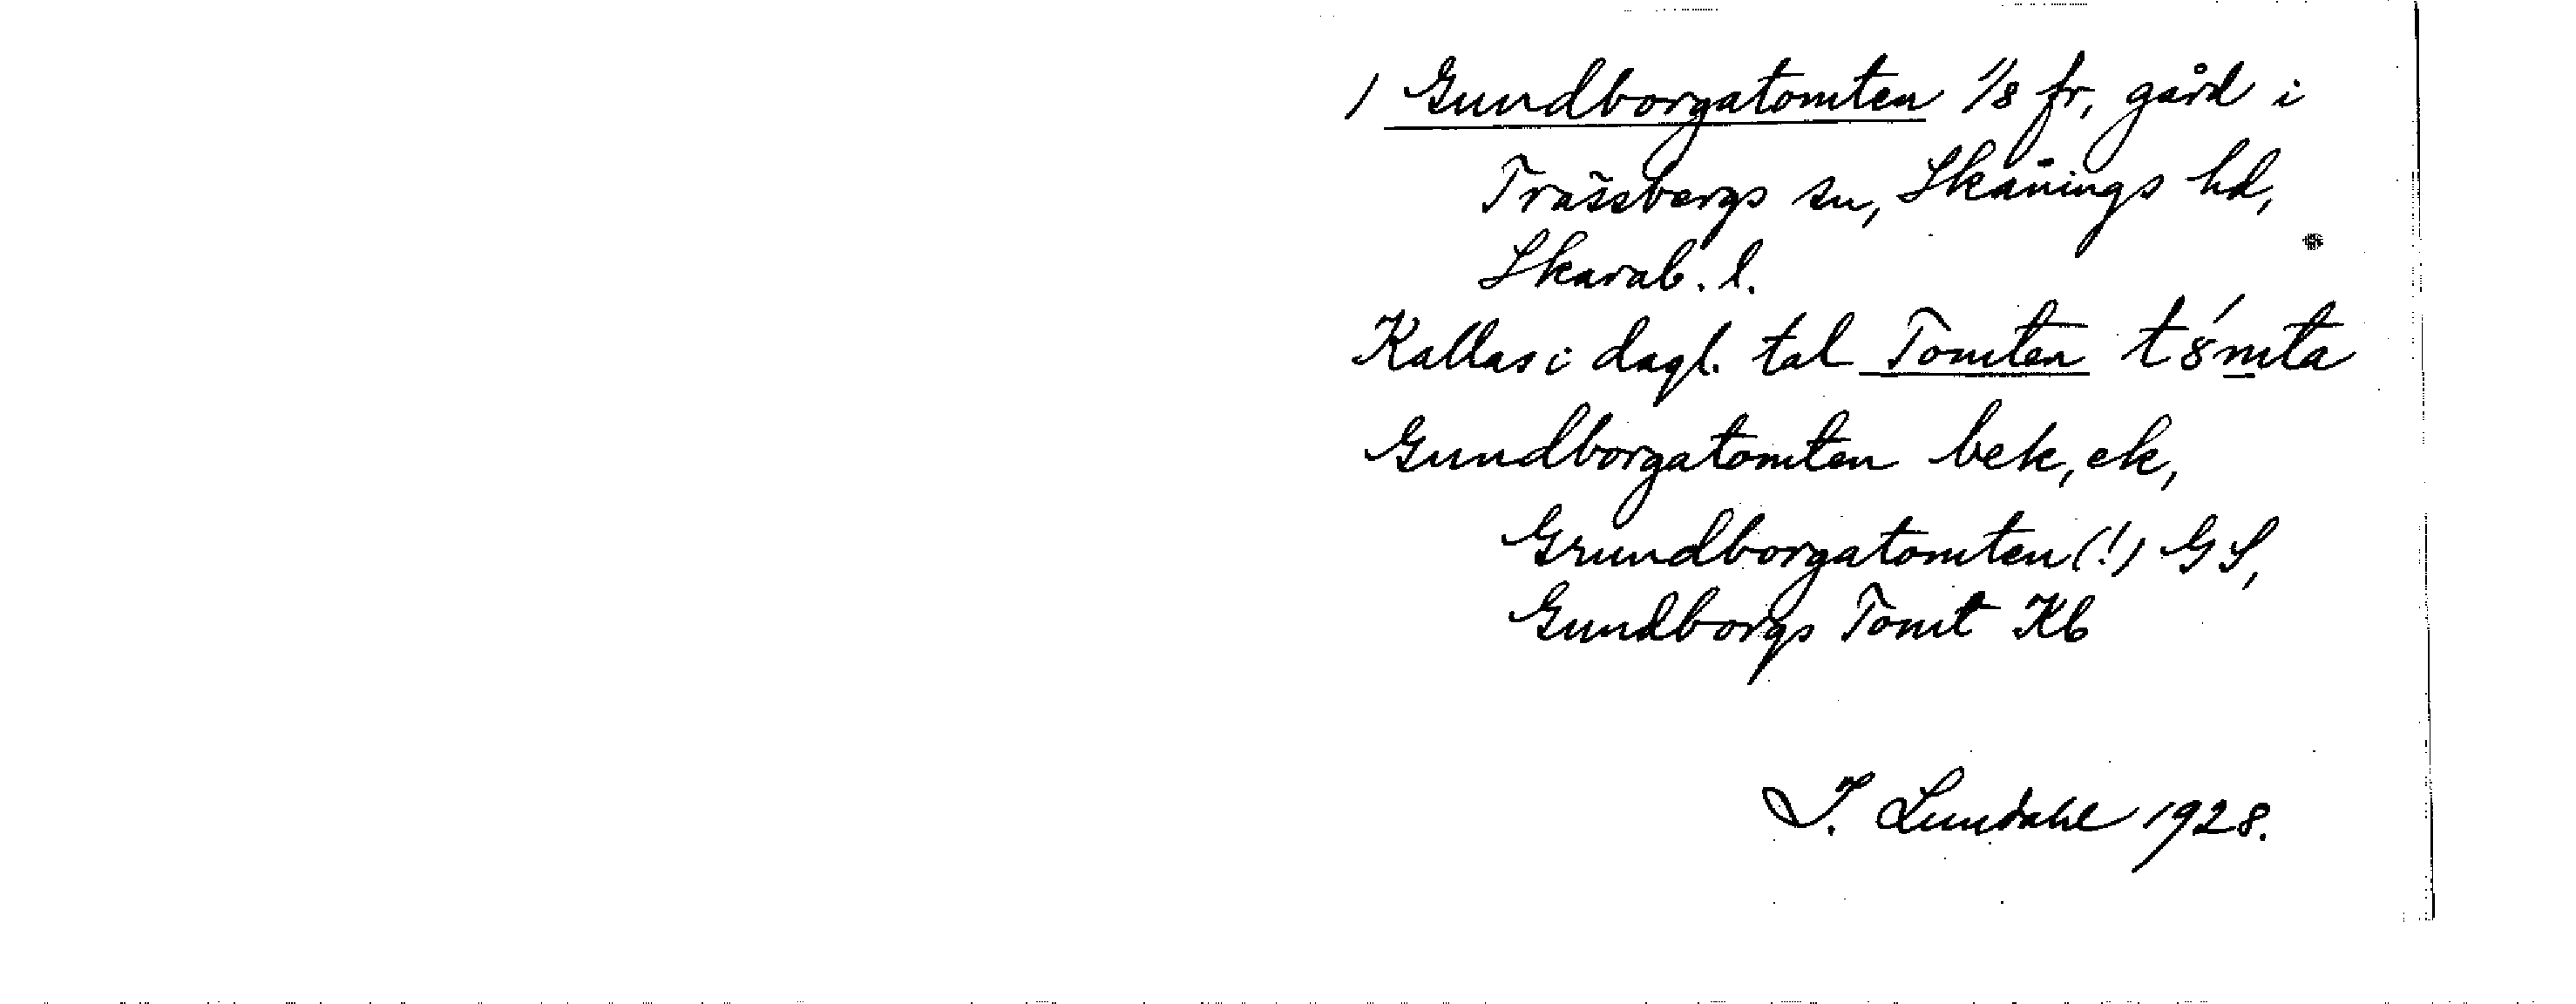 ) Gundborgatomten 1/8 fr, gård i
Trässbergs sn, Skånings hd,
Skarab. l.
Kallas i dagl. tal Tomten
Gundborgatomten bek, ek,
Grundborgatomten (!) GS,
Gundborgs Tomt Kb
I. Lundahl 1928.